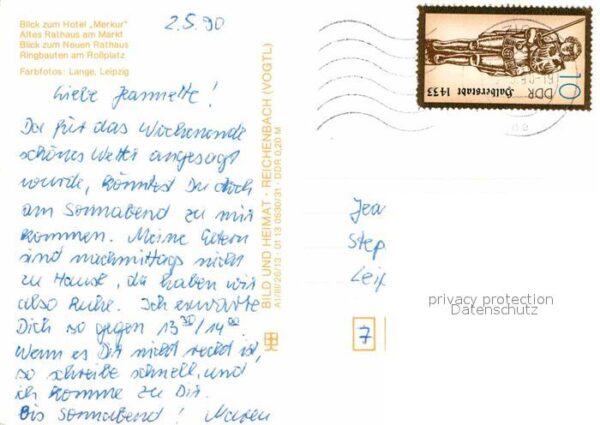 Blick zum Hotel „Merkur“
Altes Rathaus am Markt
Blick zum Neuen Rathaus
Ringbauten am Roßplatz
Farbfotos: Lange, Leipzig
2.5.90
Liebe Jeannette!
Da für das Wochenende
schönes Wetter angesagt
wurde, könntest Du doch
am Sonnabend zu mir
kommen. Meine Eltern
sind nachmittags nicht
zu Hause, da haben wir
also Ruhe. Ich erwarte
Dich so gegen 13 30/14 00
Wenn es Dir nicht recht ist,
so schreibe schnell, und
ich komme zu Dir.
Bis Sonnabend! Maren
BILD UND HEIMAT · REICHENBACH (VOGTL)
A1/III/26/13 · 01 13 0530/31 · DDR 0,20 M
10
DDR
Halberstadt 1433
Jea
Step
Leip
7
privacy protection
Datenschutz